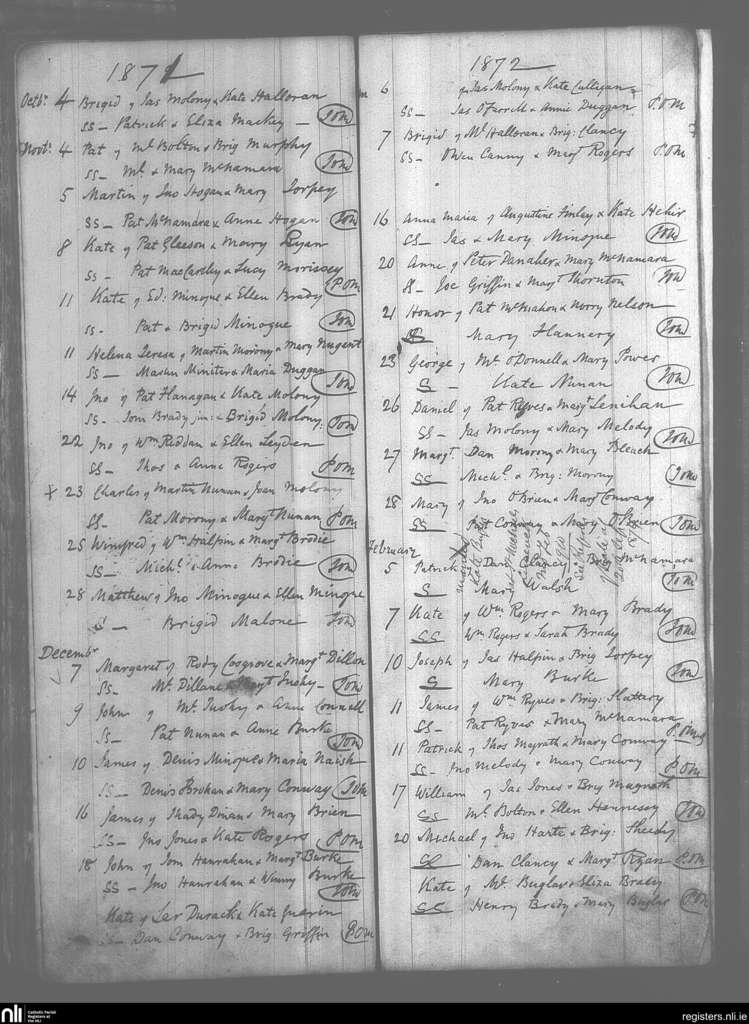 1871
Octbr 4 Brigid of Jas Molony & Kate Halloran
SS - Patrick & Eliza Mackey - Jom
Novbr 4 Pat of Ml Bolton & Brig Murphy
SS - Ml & Mary McNamara Jom
5 Martin of Jno Hogan & Mary Torpey
SS - Pat McNamara & Anne Hogan Jom
8 Kate of Pat Gleeson & Ryan
SS - Pat MacCarthy & Lucy Morissey P.OM
11 Kate of Ed: Minogue & Ellen Brady
SS. Pat & Brigid Minogue Jom
11 Helena Teresa of Martin Morony & Mary Nugent
SS - Martin Miniter & Maria Duggan Jom
14 Jno of Pat Flanagan & Kate Molony
SS - Tom Brady jun: & Brigid Molony. Jom
22 Jno of Wm Reddan & Ellen Leyden
SS - Thos & Anne Rogers P.OM
X 23 Charles of Martin Nunan & Joan Molony
SS - Pat Morony & Margt Nunan P.OM
25 Winifred of Wm Halpin & Margt Brodie
SS - Michl & Anne Brodie Jom
28 Matthew of Jno Minogue & Ellen Minogue
S - Brigid Malone Jom
Decembr
7 Margaret of Rody Cosgrove & Margt Dillon
SS - Ml Dillane Jom
9 John of Ml & Anne Connell
SS - Pat Nunan & Anne Burke Jom
10 James of Denis Minogue & Maria Naish
SS - Denis Brohan & Mary Conway Jom
16 James of Thady Dinan & Mary Brien
SS - Jno Jones & Kate Rogers P.OM
18 John of Tom Hanrahan & Margt Burke
SS - Jno Hanrahan & Winny Burke Jom
Kate of Lar Durack & Kate Guerin
SS - Dan Conway & Brig: Griffin P.OM
1872
6 of Jas Molony & Kate Culligan
SS - Jas O'Farrell & Annie Duggan P.OM
7 Brigid of Ml Halloran & Brig: Clancy
SS - Owen Canny & Margt Rogers P.OM
16 Anna Maria of Augustine Finlay & Kate Hehir
SS - Jas & Mary Minogue Jom
20 Anne of Peter Danaher & Mary McNamara
SS - Joe Griffin & Margt Thornton Jom
21 Honor of Pat McMahon & Norry Nelson
S Mary Flannery Jom
23 George of Ml O'Donnell & Mary Power
S - Kate Nunan Jom
26 Daniel of Pat Ryves & Margt Lenihan
SS - Jas Molony & Mary Melody Jom
27 Margt. Dan Morony & Mary Bleach
SS Michl & Brig: Morony Jom
28 Mary of Jno O'Brien & Margt Conway
SS - Pat Conway & Mary O'Brien Jom
February
5 Patrick of Dan Clancy & Brig McNamara
S Mary Walsh Jom
7 Kate of Wm Rogers & Mary Brady
SS Wm Rogers & Sarah Brady Jom
10 Joseph of Jas Halpin & Brig Torpey
S Mary Burke Jom
11 James of Wm Ryves & Brig: Slattery
SS - Pat Ryves & Mary McNamara P.OM
11 Patrick of Thos Magrath & Mary Conway
SS - Jno Melody & Mary Conway P.OM
17 William of Jas Jones & Brig Magrath
SS Ml Bolton & Ellen Hennessy Jom
20 Michael of Jno Harte & Brig: Sheedy
SS Dan Clancy & Margt Ryan P.OM
Kate of Ml Buglar & Eliza Brady
SS Henry Brady & Mary Buglar P.OM
nli Catholic Parish Registers at the NLI
registers.nli.ie